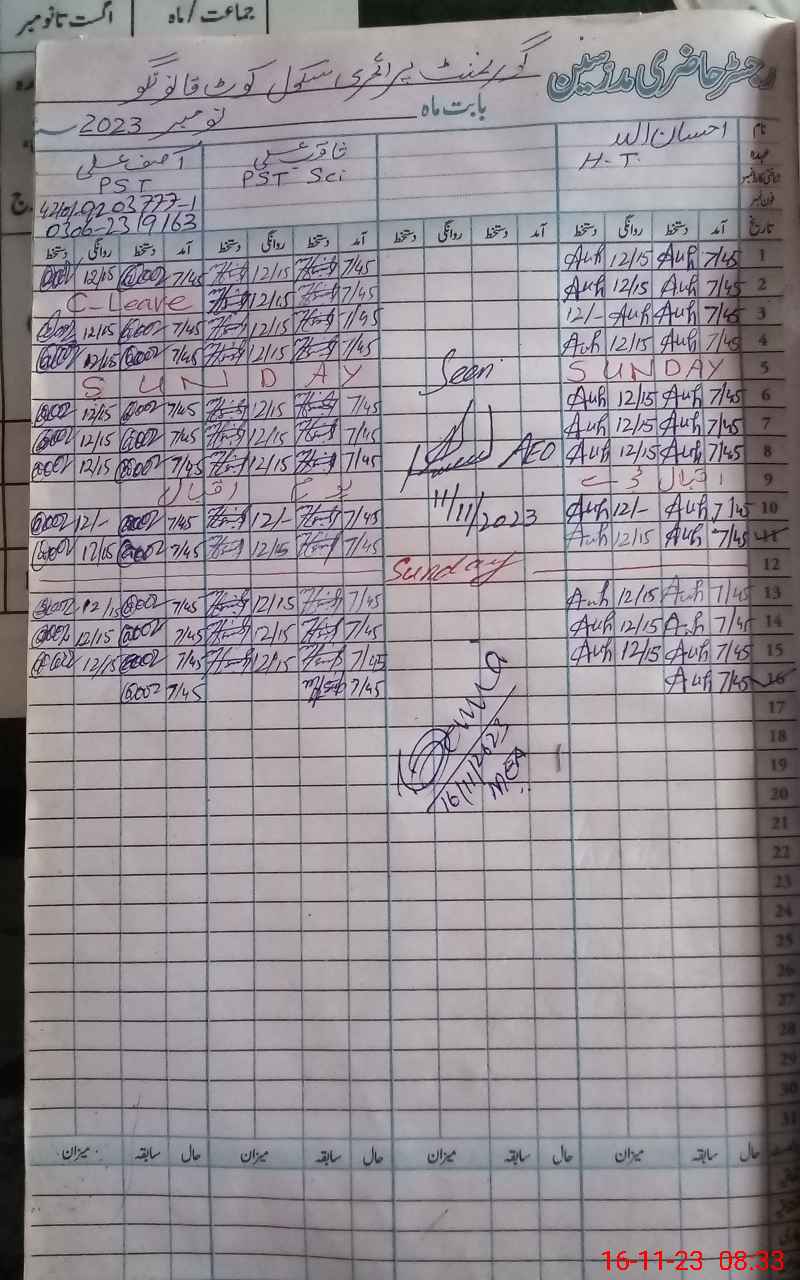 جماعت / ماہ
اگست تا نومبر
رجسٹر حاضری مدرسین
گورنمنٹ پرائمری سکول کوٹ قانونگو
بابت ماہ نومبر 2023
نام احسان اللہ آصف علی
عہدہ H.T. PST Sci PST
42101-0203777-1
فون نمبر 0306-2319163
تاریخ آمد دستخط روانگی دستخط آمد دستخط روانگی دستخط آمد دستخط روانگی دستخط آمد دستخط روانگی دستخط
1 7/45 Auh 12/15 Auh 7/45 12/15 7/45 12/15
2 7/45 Auh 12/15 Auh 7/45 12/15 C-Leave
3 7/45 Auh Auh 12/- 7/45 12/15 7/45 12/15
4 7/45 Auh 12/15 Auh 7/45 12/15 7/45 12/15
5 SUNDAY SUNDAY
Seen
6 7/45 Auh 12/15 Auh 7/45 12/15 7/45 12/15
7 7/45 Auh 12/15 Auh 7/45 12/15 7/45 12/15
8 7/45 Auh 12/15 Auh AEO 7/45 12/15 7/45 12/15
9 اقبال ڈے یوم اقبال
10 7/45 Auh 12/- Auh 11/11/2023 7/45 12/- 7/45 12/-
11 7/45 Auh 12/15 Auh 7/45 12/15 7/45 12/15
12 Sunday
13 7/45 Auh 12/15 Auh 7/45 12/15 7/45 12/15
14 7/45 Auh 12/15 Auh 7/45 12/15 7/45 12/15
15 7/45 Auh 12/15 Auh 7/45 12/15 7/45 12/15
16 7/45 Auh 7/45 7/45
17
18
16/11/2023
19
MEA
20
21
22
23
24
25
26
27
28
29
30
31
حال سابقہ میزان حال سابقہ میزان حال سابقہ میزان حال سابقہ میزان
16-11-23 08:33